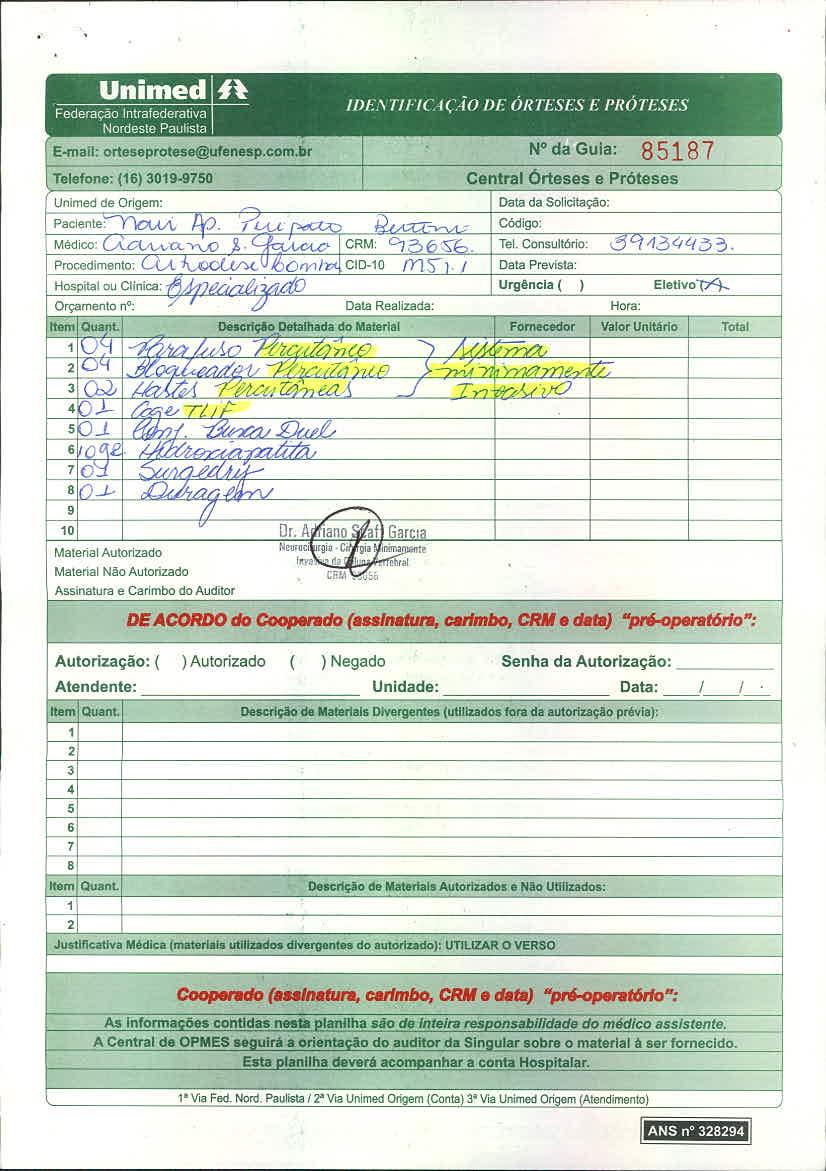 Unimed
Federação Intrafederativa
Nordeste Paulista
IDENTIFICAÇÃO DE ÓRTESES E PRÓTESES
E-mail: orteseprotese@ufenesp.com.br
Nº da Guia: 85187
Telefone: (16) 3019-9750
Central Órteses e Próteses
Unimed de Origem:
Data da Solicitação:
Paciente: Ap.
Código:
Médico: Adriano S. Garcia CRM: 93656.
Tel. Consultório: 39134433.
Procedimento: Artrodese lombar CID-10 M51.1
Data Prevista:
Hospital ou Clínica: Especializado
Urgência ( ) Eletivo (X)
Orçamento nº: Data Realizada: Hora:
Item Quant. Descrição Detalhada do Material Fornecedor Valor Unitário Total
1 04 Parafuso Percutâneo } Sistema
2 04 Bloqueador Percutâneo minimamente
3 02 Hastes Percutâneas Invasivo
4 01 Cage TLIF
5 01
6 10g Hidroxiapatita
7 01 Surgedry
8 01 Duragem
9
10
Dr. Adriano Scaff Garcia
Neurocirurgia - Cirurgia Minimamente
Invasiva da Coluna Vertebral
CRM
Material Autorizado
Material Não Autorizado
Assinatura e Carimbo do Auditor
DE ACORDO do Cooperado (assinatura, carimbo, CRM e data) “pré-operatório”:
Autorização: ( ) Autorizado ( ) Negado Senha da Autorização: ____________
Atendente: ____________ Unidade: ____________ Data: ____/____/____
Item Quant. Descrição de Materiais Divergentes (utilizados fora da autorização prévia):
1
2
3
4
5
6
7
8
Item Quant. Descrição de Materiais Autorizados e Não Utilizados:
1
2
Justificativa Médica (materiais utilizados divergentes do autorizado): UTILIZAR O VERSO
Cooperado (assinatura, carimbo, CRM e data) “pré-operatório”:
As informações contidas nesta planilha são de inteira responsabilidade do médico assistente.
A Central de OPMES seguirá a orientação do auditor da Singular sobre o material à ser fornecido.
Esta planilha deverá acompanhar a conta Hospitalar.
1ª Via Fed. Nord. Paulista / 2ª Via Unimed Origem (Conta) 3ª Via Unimed Origem (Atendimento)
ANS nº 328294